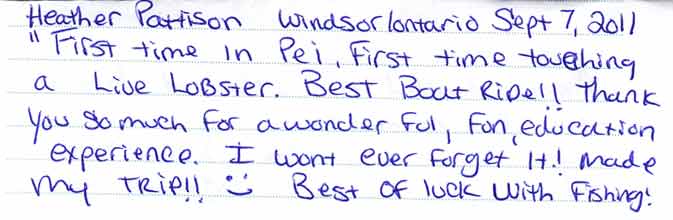 Heather Pattison Windsor/ontario Sept 7, 2011
"First time in Pei, First time touching
a Live Lobster. Best Boat Ride!! Thank
you so much for a wonder ful, fun, education
experience. I wont ever forget it! made
my TRIP!! :) Best of luck with Fishing!